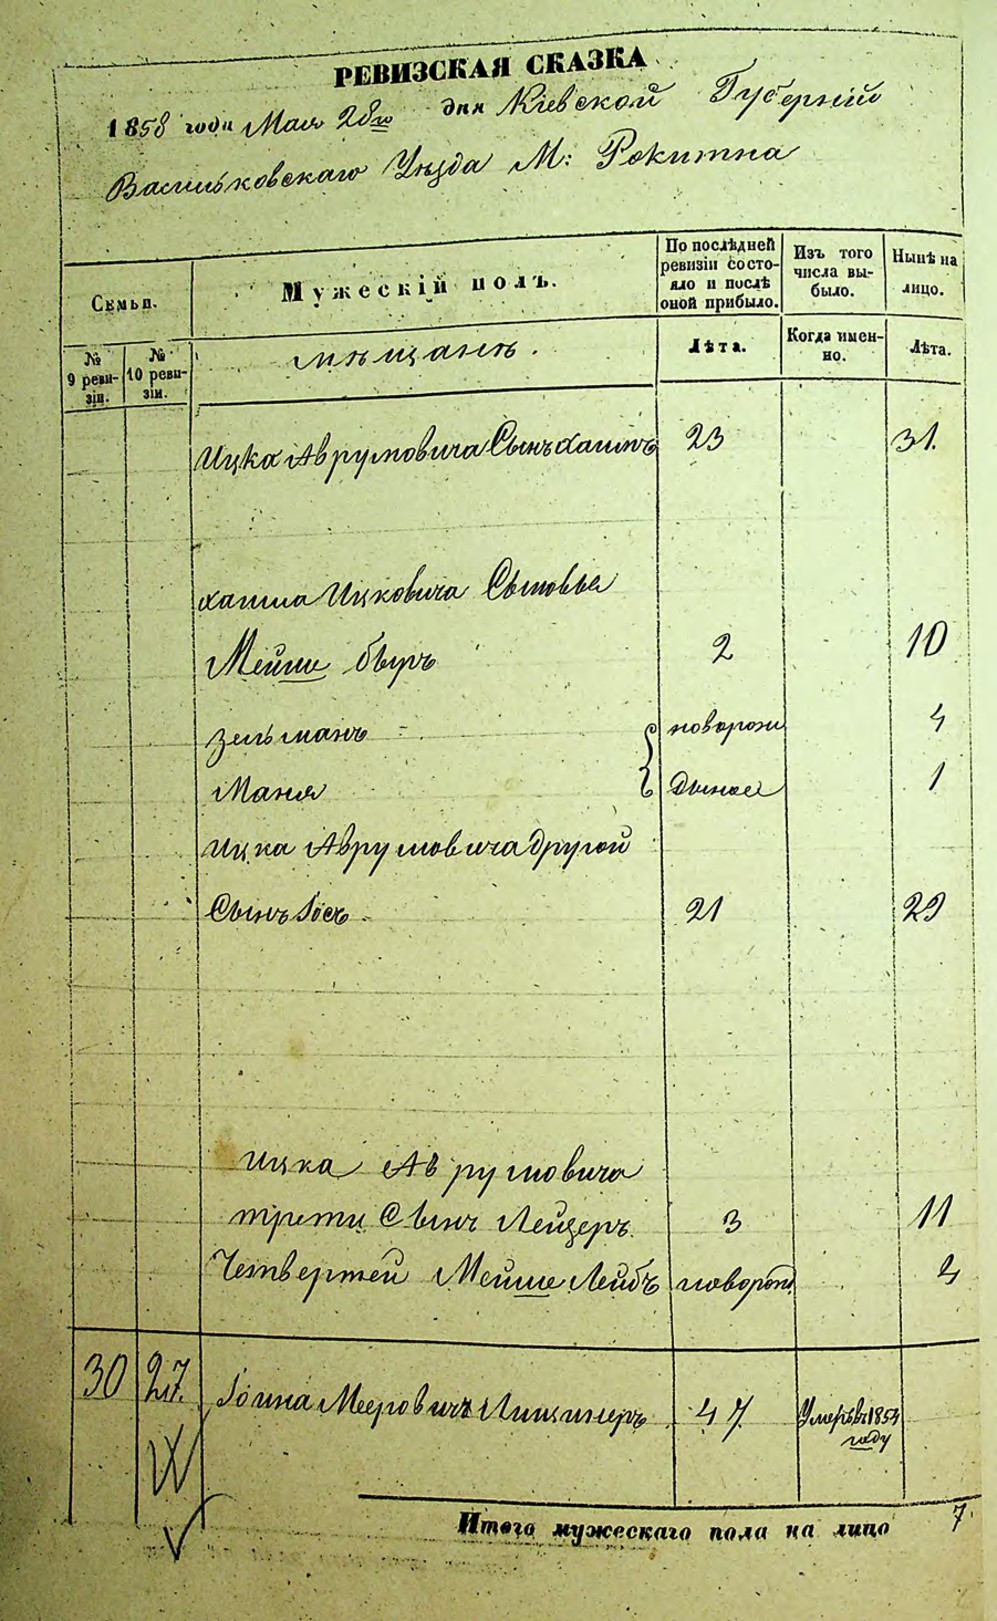 РЕВИЗСКАЯ СКАЗКА
1858 года Мая 28го дня Кіевской Губерніи
Васильковскаго Уѣзда М: Рокитна
Семьи.
№ 9 ревизіи.
№ 10 ревизіи.
Мужескій полъ.
По послѣдней ревизіи состояло и послѣ оной прибыло.
Изъ того числа выбыло.
Нынѣ на лицо.
мѣщанѣ.
Лѣта.
Когда именно.
Лѣта.
Ицка Аврумовича Сынъ Хаимъ 23 31.
Хаима Ицковича Сыновья
Мейше Беръ 2 10
Зельманъ новорож 4
Маня дыные 1
Ицка Аврумовича другой
Сынъ Іосъ 21 29
Ицка Аврумовича
трети Сынъ Лейзеръ 3 11
Четвертей Мейше Лейбъ новорож 4
30 27. Іоина Мееровичъ 47 Умеръ въ 1854 году
Итого мужескаго пола на лицо 7.